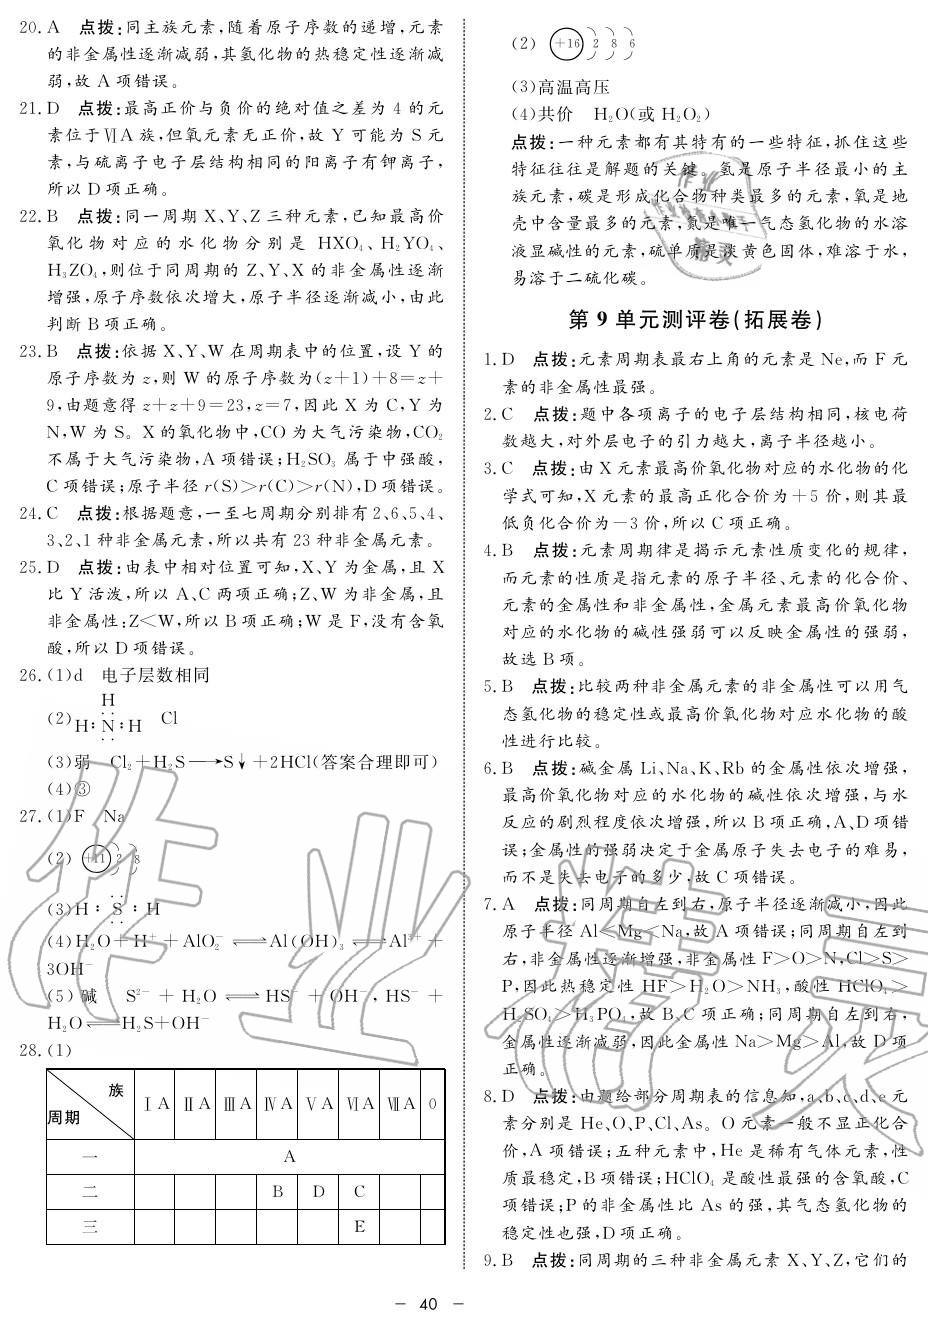 20. A 点拨:同主族元素,随着原子序数的递增,元素
的非金属性逐渐减弱,其氢化物的热稳定性逐渐减
弱,故 A 项错误。
21. D 点拨:最高正价与负价的绝对值之差为 4 的元
素位于ⅥA 族,但氧元素无正价,故 Y 可能为 S 元
素,与硫离子电子层结构相同的阳离子有钾离子,
所以 D 项正确。
22. B 点拨:同一周期 X、Y、Z 三种元素,已知最高价
氧化物对应的水化物分别是 HXO₄、H₂YO₄、
H₃ZO₄,则位于同周期的 Z、Y、X 的非金属性逐渐
增强,原子序数依次增大,原子半径逐渐减小,由此
判断 B 项正确。
23. B 点拨:依据 X、Y、W 在周期表中的位置,设 Y 的
原子序数为 z,则 W 的原子序数为(z+1)+8=z+
9,由题意得 z+z+9=23,z=7,因此 X 为 C,Y 为
N,W 为 S。X 的氧化物中,CO 为大气污染物,CO₂
不属于大气污染物,A 项错误;H₂SO₃ 属于中强酸,
C 项错误;原子半径 r(S)>r(C)>r(N),D 项错误。
24. C 点拨:根据题意,一至七周期分别排有 2、6、5、4、
3、2、1 种非金属元素,所以共有 23 种非金属元素。
25. D 点拨:由表中相对位置可知,X、Y 为金属,且 X
比 Y 活泼,所以 A、C 两项正确;Z、W 为非金属,且
非金属性:Z<W,所以 B 项正确;W 是 F,没有含氧
酸,所以 D 项错误。
26. (1)d 电子层数相同
H
(2) H:N:H Cl
(3)弱 Cl₂+H₂S⟶S↓+2HCl(答案合理即可)
(4)③
27. (1)F Na
(2) +11 2 8
(3)H:S:H
(4)H₂O+H⁺+AlO₂⁻⇌Al(OH)₃⇌Al³⁺+
3OH⁻
(5)碱 S²⁻+H₂O⇌HS⁻+OH⁻,HS⁻+
H₂O⇌H₂S+OH⁻
28. (1)
族
周期 ⅠA ⅡA ⅢA ⅣA ⅤA ⅥA ⅦA 0
一 A
二 B D C
三 E
(2) +16 2 8 6
(3)高温高压
(4)共价 H₂O(或 H₂O₂)
点拨:一种元素都有其特有的一些特征,抓住这些
特征往往是解题的关键。氢是原子半径最小的主
族元素,碳是形成化合物种类最多的元素,氧是地
壳中含量最多的元素,氮是唯一气态氢化物的水溶
液显碱性的元素,硫单质是淡黄色固体,难溶于水,
易溶于二硫化碳。
第 9 单元测评卷(拓展卷)
1. D 点拨:元素周期表最右上角的元素是 Ne,而 F 元
素的非金属性最强。
2. C 点拨:题中各项离子的电子层结构相同,核电荷
数越大,对外层电子的引力越大,离子半径越小。
3. C 点拨:由 X 元素最高价氧化物对应的水化物的化
学式可知,X 元素的最高正化合价为+5 价,则其最
低负化合价为-3 价,所以 C 项正确。
4. B 点拨:元素周期律是揭示元素性质变化的规律,
而元素的性质是指元素的原子半径、元素的化合价、
元素的金属性和非金属性,金属元素最高价氧化物
对应的水化物的碱性强弱可以反映金属性的强弱,
故选 B 项。
5. B 点拨:比较两种非金属元素的非金属性可以用气
态氢化物的稳定性或最高价氧化物对应水化物的酸
性进行比较。
6. B 点拨:碱金属 Li、Na、K、Rb 的金属性依次增强,
最高价氧化物对应的水化物的碱性依次增强,与水
反应的剧烈程度依次增强,所以 B 项正确,A、D 项错
误;金属性的强弱决定于金属原子失去电子的难易,
而不是失去电子的多少,故 C 项错误。
7. A 点拨:同周期自左到右,原子半径逐渐减小,因此
原子半径 Al<Mg<Na,故 A 项错误;同周期自左到
右,非金属性逐渐增强,非金属性 F>O>N,Cl>S>
P,因此热稳定性 HF>H₂O>NH₃,酸性 HClO₄>
H₂SO₄>H₃PO₄,故 B、C 项正确;同周期自左到右,
金属性逐渐减弱,因此金属性 Na>Mg>Al,故 D 项
正确。
8. D 点拨:由题给部分周期表的信息知,a、b、c、d、e 元
素分别是 He、O、P、Cl、As。O 元素一般不显正化合
价,A 项错误;五种元素中,He 是稀有气体元素,性
质最稳定,B 项错误;HClO₄ 是酸性最强的含氧酸,C
项错误;P 的非金属性比 As 的强,其气态氢化物的
稳定性也强,D 项正确。
9. B 点拨:同周期的三种非金属元素 X、Y、Z,它们的
— 40 —
作业精灵